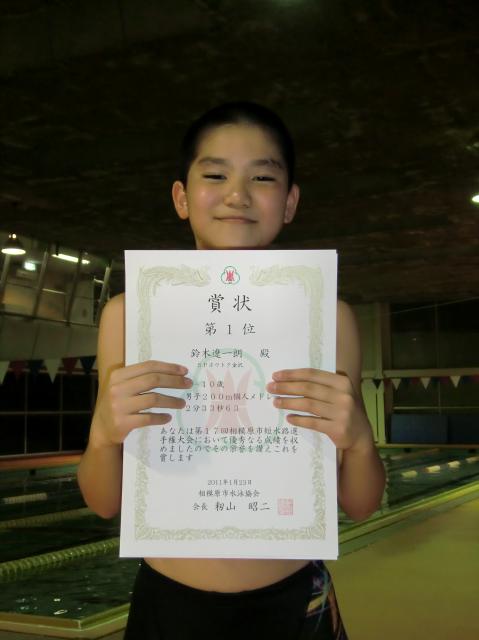 賞状
第1位
鈴木遼一朗 殿
～10歳
男子200m個人メドレ
2分33秒63
あなたは第17回相模原市短水路選
手権大会において優秀なる成績を収
めましたのでその栄誉を讃えこれを
賞します
2011年1月23日
相模原市水泳協会
会長 籾山 昭二